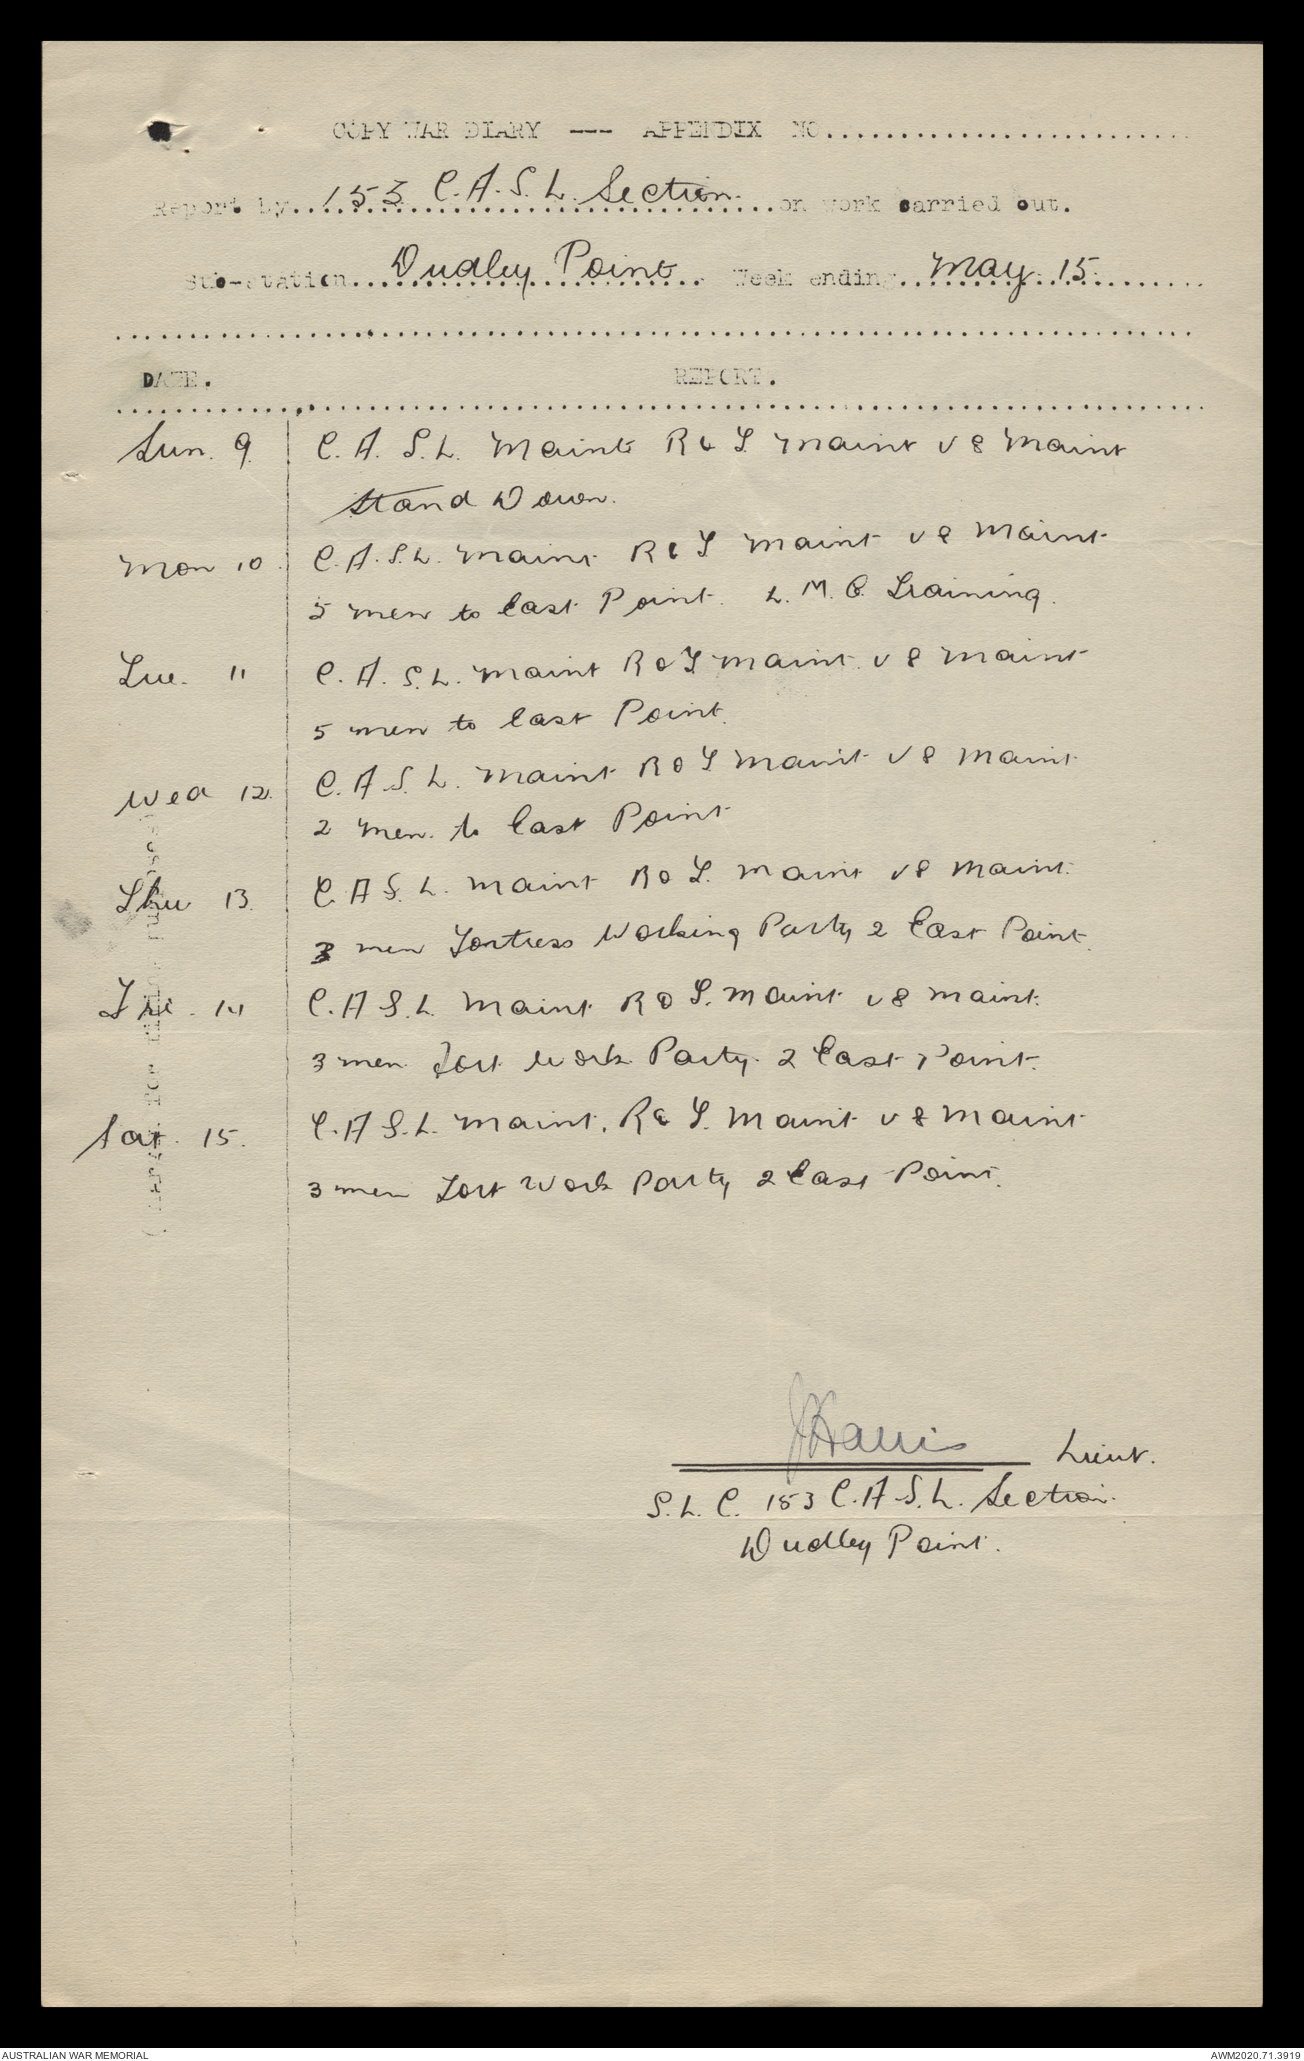 COPY WAR DIARY --- APPENDIX NO..............................
Report by 153 C.A.S.L. Section on work carried out.
Sub-station Dudley Point Week ending May 15
DATE. REPORT.
Sun. 9. C.A.S.L. Maint R & T Maint V8 Maint
Stand Down.
Mon 10 C.A.S.L. Maint R & T Maint V8 Maint
5 men to East Point. L.M.G. Training.
Tue. 11 C.A.S.L. Maint R & T Maint. V8 Maint
5 men to East Point.
Wed 12. C.A.S.L. Maint R & T Maint V8 Maint
2 Men. to East Point
Thu 13. C.A.S.L. Maint R & T. Maint V8 Maint.
3 men Fortress Working Party 2 East Point.
Fri. 14 C.A.S.L. Maint R & T. Maint V8 Maint.
3 men Fort Work Party. 2 East Point.
Sat. 15. C.A.S.L. Maint. R & T. Maint V8 Maint
3 men Fort Work Party 2 East Point.
JHarris Lieut.
S.L.C. 153 C.A.S.L. Section.
Dudley Point.
AUSTRALIAN WAR MEMORIAL
AWM2020.71.3919